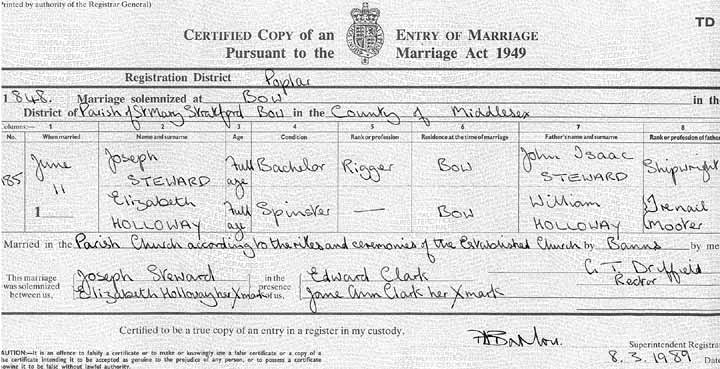 Printed by authority of the Registrar General)
CERTIFIED COPY of an ENTRY OF MARRIAGE
Pursuant to the Marriage Act 1949
TD
Registration District Poplar
1848. Marriage solemnized at Bow in the
District of Parish of St Mary Stratford Bow in the County of Middlesex
Columns:— 1 2 3 4 5 6 7 8
No. When married Name and surname Age Condition Rank or profession Residence at the time of marriage Father's name and surname Rank or profession of father
185 June 11 Joseph STEWARD Full age Bachelor Rigger Bow John Isaac STEWARD Shipwright
1 Elizabeth HOLLOWAY Full age Spinster — Bow William HOLLOWAY Trenail Mooter
Married in the Parish Church according to the rites and ceremonies of the Established Church by Banns by me
This marriage was solemnized between us, Joseph Steward in the presence of us, Edward Clark G T Driffield
Elizabeth Holloway her X mark Jane Ann Clark her X mark Rector
Certified to be a true copy of an entry in a register in my custody.
Superintendent Registrar
8.3.1989 Date
CAUTION:—It is an offence to falsify a certificate or to make or knowingly use a false certificate or a copy of a
false certificate intending it to be accepted as genuine to the prejudice of any person, or to possess a certificate
knowing it to be false without lawful authority.